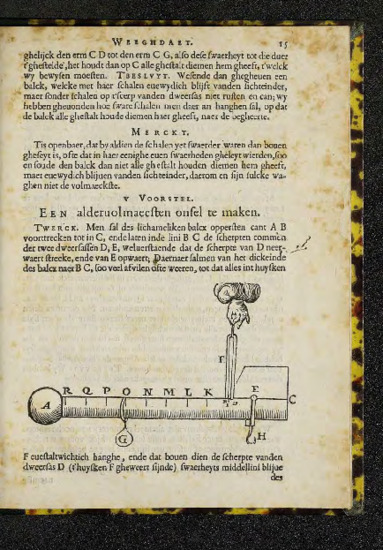 WEEGHDAET. 15
ghelijck den erm C D tot den erm C G, also dese swaerheyt tot die duer
t'ghestelde, het houdt dan op C alle ghestalt diemen hem gheeft, t'welck
wy bewysen moesten. TBESLVYT. Wesende dan ghegheuen een
balck, welcke met haer schalen euewydich blijft vanden sichteinder,
maer sonder schalen op t'scerp vanden dweersas niet rusten en can; wy
hebben gheuonden hoe sware schalen men daer an hanghen sal, op dat
de balck alle ghestalt houde diemen haer gheeft, naer de begheerte.
MERCKT.
Tis openbaer, dat by aldien de schalen yet swaerder waren dan bouen
gheseyt is, ofte dat in haer eenighe euen swaerheden gheleyt wierden, soo
en soude den balck dan niet alle ghestalt houden diemen hem gheeft,
maer euewydich blijuen vanden sichteinder, daerom en sijn sulcke wa-
ghen niet de volmaeckste.
V VOORSTEL.
EEN aldervolmaecsten onsel te maken.
TWERCK. Men sal des lichamelicken balcx oppersten cant A B
voorttrecken tot in C, ende laten inde lini B C de scherpten commen
der twee dweersassen D, E, welverstaende dat de scherpte van D neer-
waert streeke, ende van E opwaert; Daernaer salmen van het dickeinde
des balcx naer B C, soo veel afvilen ofte weeren, tot dat alles int huysken
F
R Q P O N M L K E
A C
G H
F euestaltwichtich hanghe, ende dat bouen dien de scherpte vanden
dweersas D (t'huysken F gheweert sijnde) swaerheyts middellini blijue
des